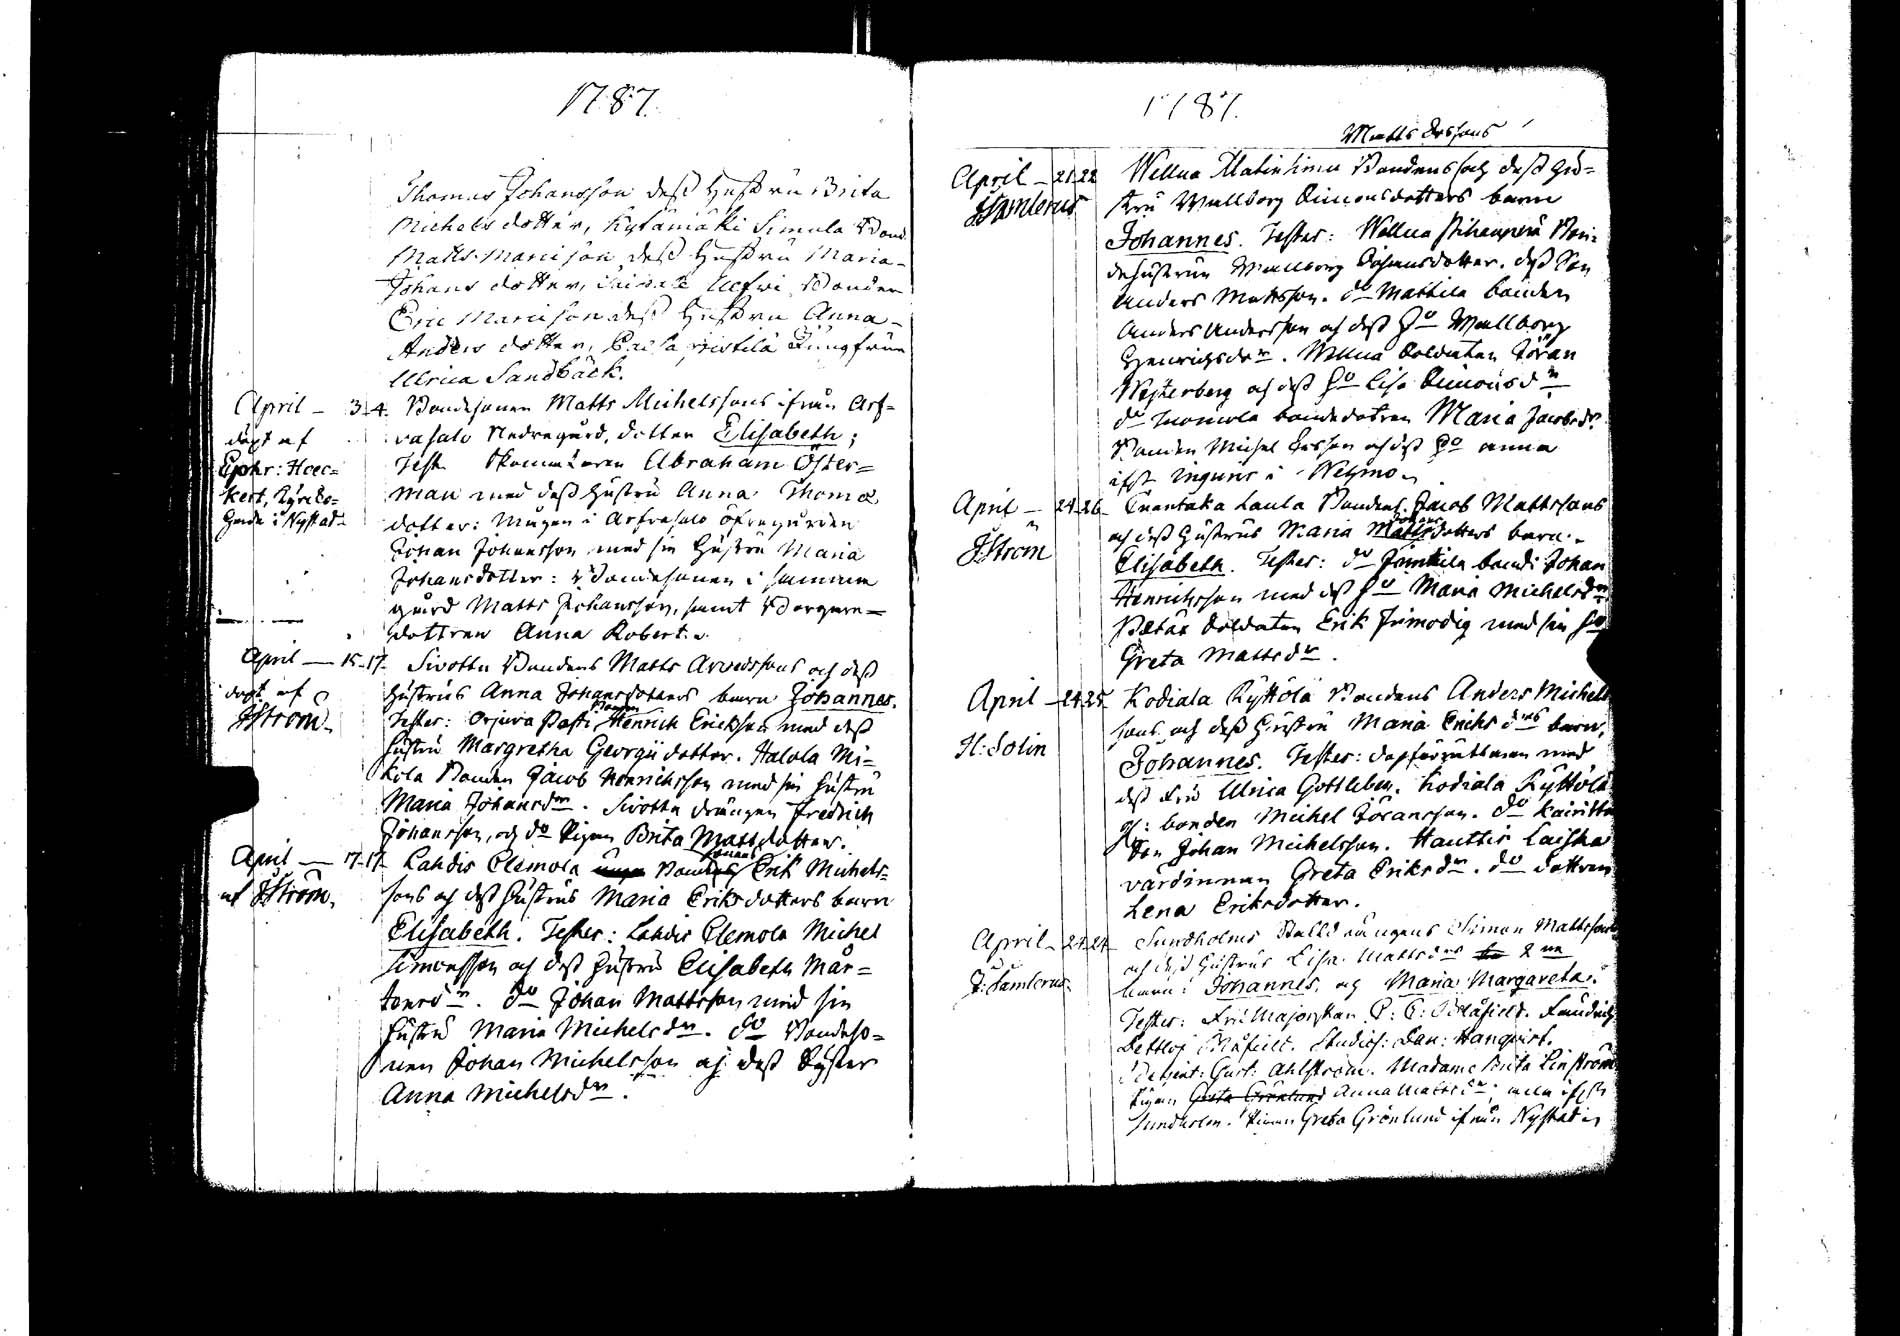 1787.
Thomas Johansson dess Hustru Brita
Michels dotter, Kytämäki Simula Bond.
Matts Marcison dess Hustru Maria
Johans dotter, Ulfvi Bonden
Eric Marcison dess Hustru Anna
Anders dotter, Jungfrun
Ulrica Sandbäck.
April - 3 4. Bondesonen Matts Michelssons ifrån Arf=
döpt af vasalo Nedregård, dotter Elisabeth;
Ephr: Hoec= Test. Abraham Öster=
kert, Kyrko= man med dess Hustru Anna Thomæ
herde i Nystad dotter: Mågen i Arfvasalo öfregården
Johan Johansson med sin Hustru Maria
Johansdotter: Bondesonen i samma
gård Matts Johansson, samt Borgare=
dottren Anna Robert.
April — 15-17. Sivottu Bondens Matts Arvedssons och dess
döpt af Hustrus Anna Johansdotters barn Johannes.
JStröm. Tester: Orjiva Pasti Bonden Henrich Ericksson med dess
Hustru Margretha Georgii dotter. Halola Mi=
kola Bonden Jacob Henrichsson med sin Hustru
Maria Johansdr. Sivottu drängen Fredrich
Johansson, och do Pigan Brita Mattsdotter.
April — 17-17. Lahdis Clemola Bondens sonens Erik Michels=
af JStröm. sons och dess Hustrus Maria Eriksdotters barn
Elisabeth. Tester: Lahdis Clemola Michel
Simonsson och dess Hustru Elisabeth Mår=
tensdr. do Johan Mattsson med sin
Hustru Maria Michelsdr. do Bondeso=
nen Johan Michelsson och dess Syster
Anna Michelsdr.
1787.
Matts Erssons
April - 21 22 Wellua Bondens och dess Hu=
JSamlerus stru Wallborg Simonsdotters barn
Johannes. Tester: Wellua Bon=
dehustrun Wallborg dess Son
Anders Mattsson. do Mattila bonden
Anders Andersson och dess Ho Wallborg
Henrichsdr. Wellua Soldaten Jöran
Westerberg och dess Ho Lisa Simonsdr
do Tuomola bondedotren Maria Jacobsdr.
Bonden Michel Ersson och dess Ho Anna
i Wehmo
April - 24-26 Laula Bondens Jacob Mattssons
JStröm och dess Hustrus Maria Johans Mattsdotters barn
Elisabeth. Tester: do bond: Johan
Henrichsson med dess Ho Maria Michelsdr
Soldaten Erik Frimodig med sin Ho
Greta Mattsdr.
April - 24 25. Kodiala Kyttölä Bondens Anders Michels
H: Solin sons och dess Hustru Maria Eriksdrs barn,
Johannes. Tester: med
dess Fru Ulrica Gottleben. Kodiala Kyttölä
bonden Michel Jöransson. do
Son Johan Michelsson. Hauttis Laisha
värdinnan Greta Eriksdr. do dottren
Lena Eriksdotter.
April - 24 24 Sundholms Stalldrängens Simon Mattssons
J: Samlerus och dess Hustrus Lisa Mattsdrs
barn: Johannes, och Maria Margareta.
Tester: Fru Majorskan Blåfield.
Detlof Blåfield. Studios: Dan: Hanqvist.
Gust: Ahlström. Madame Brita Linström
Pigan Greta Grönlund Anna Mattsdr, alla ifrån
Sundholm. Pigan Greta Grönlund ifrån Nystad